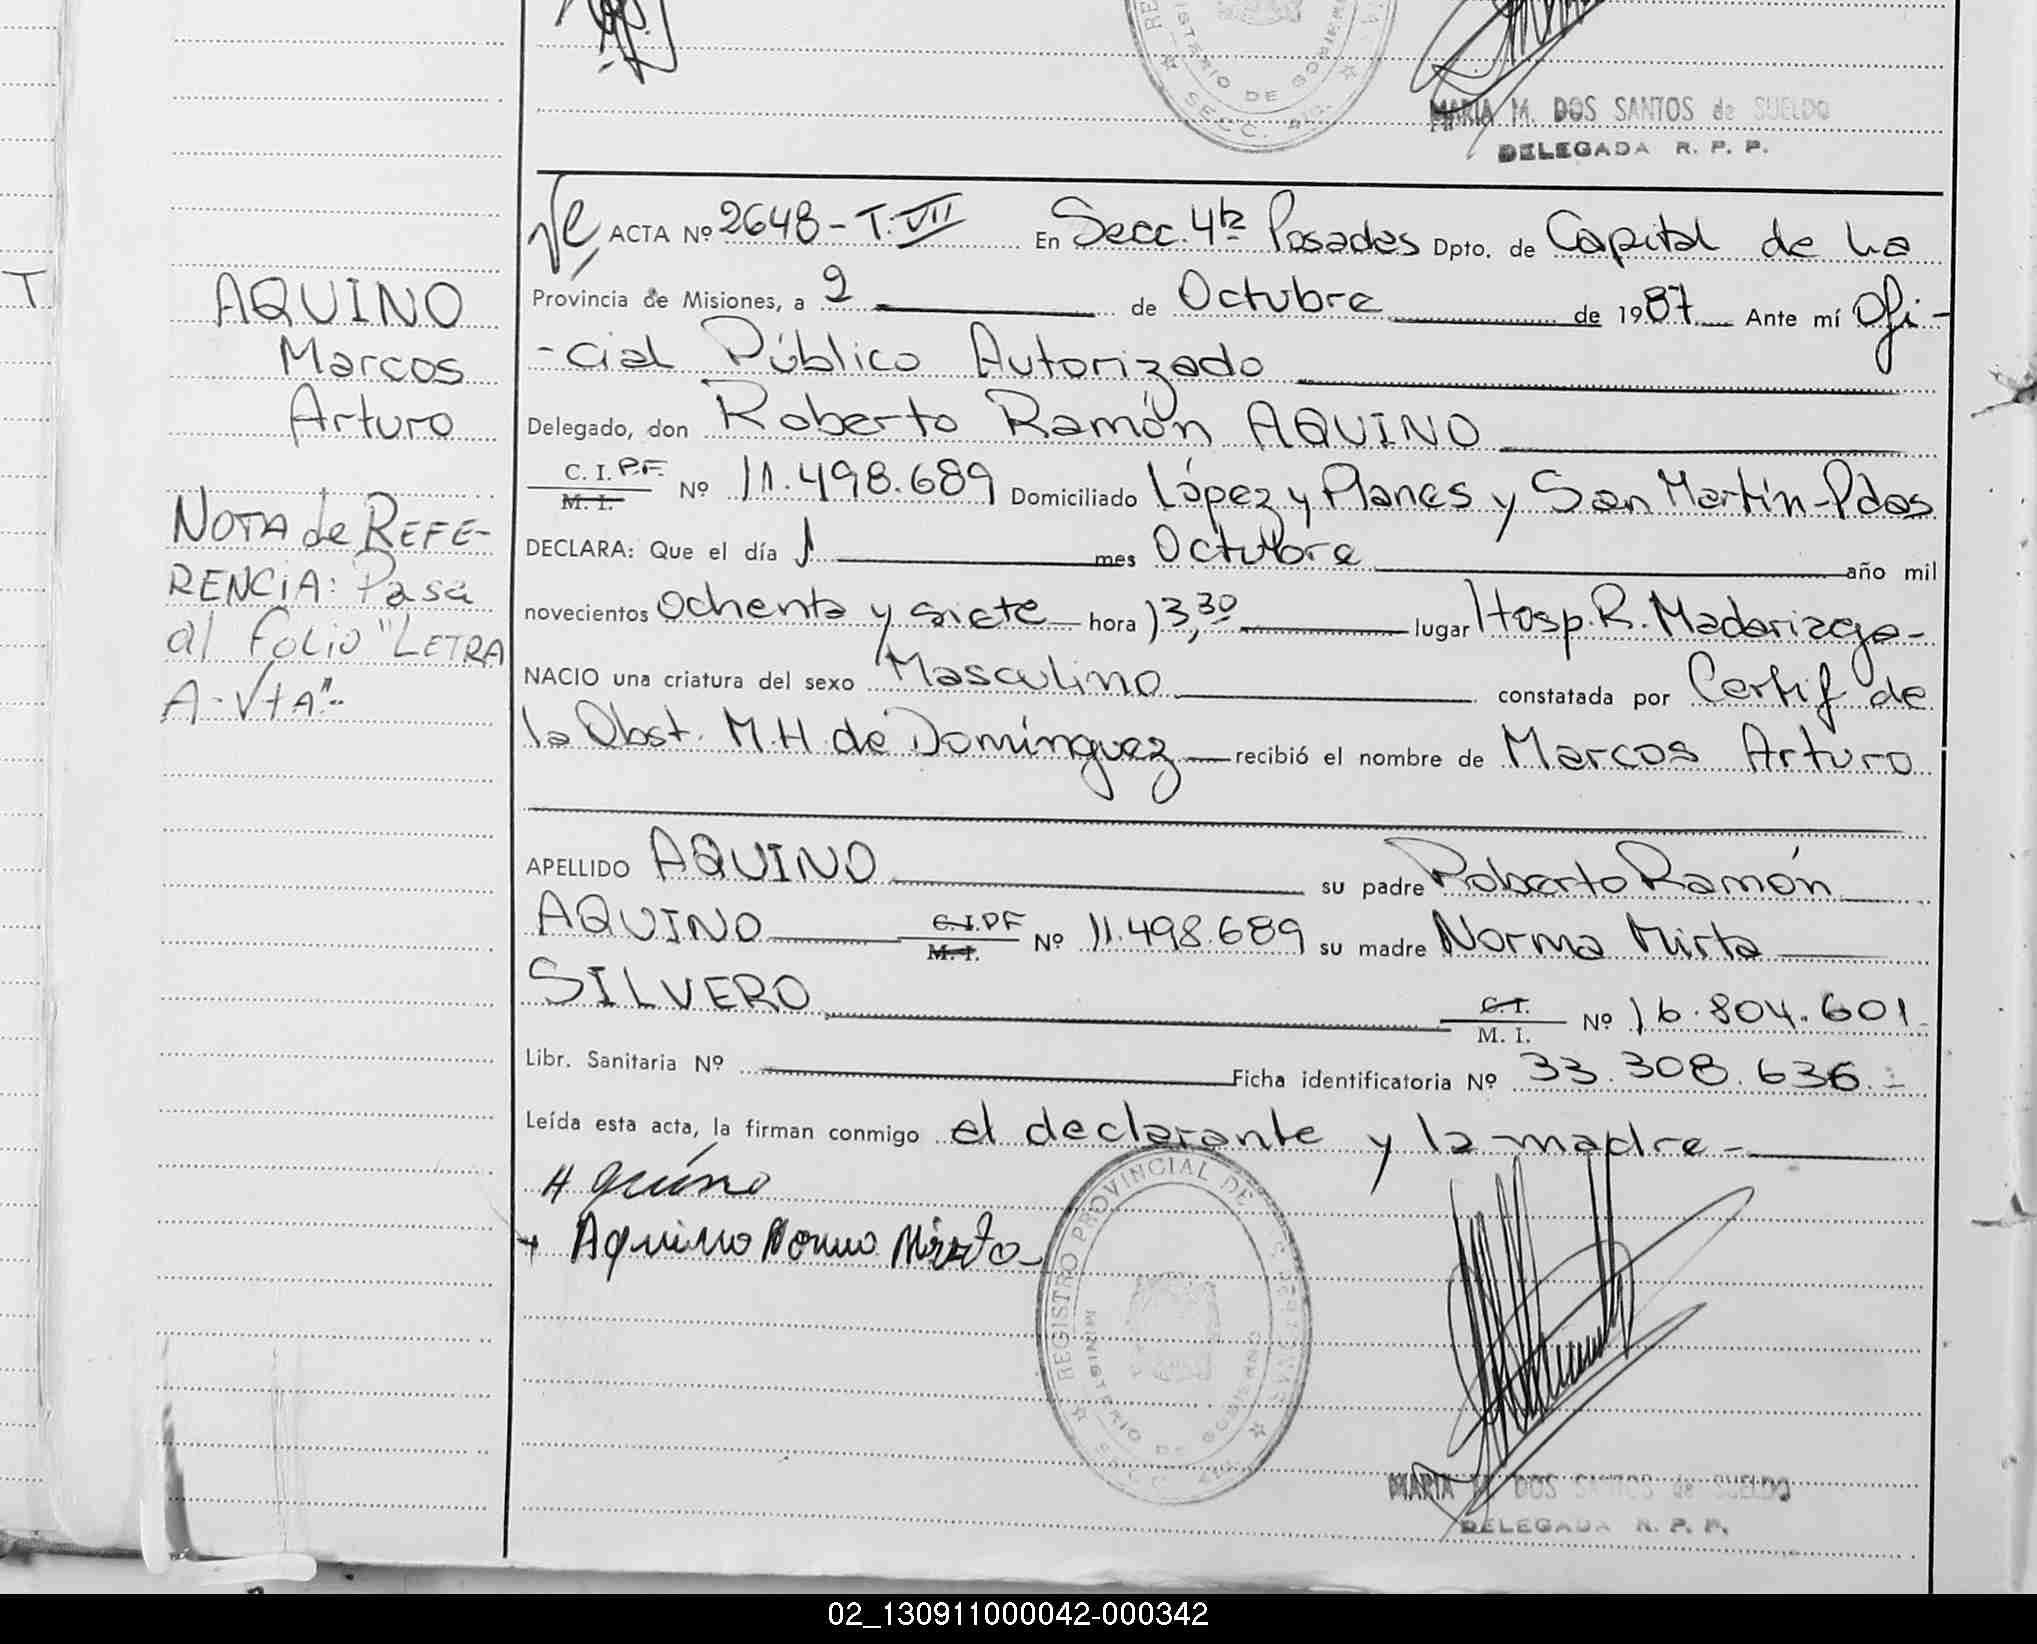 MARIA M. DOS SANTOS de SUELDO
DELEGADA R. P. P.
AQUINO
Marcos
Arturo
NOTA de REFE-
RENCIA: Pasa
al Folio "LETRA
A-VTA"--
ACTA Nº 2648 - T. VII En Secc. 4ta Posadas Dpto. de Capital de la
Provincia de Misiones, a 2 de Octubre de 1987 Ante mí Ofi-
-cial Público Autorizado
Delegado, don Roberto Ramón AQUINO
C. I. P.F. M. I. Nº 11.498.689 Domiciliado López y Planes y San Martín - Pdas
DECLARA: Que el día 1 mes Octubre año mil
novecientos ochenta y siete hora 13,30 lugar Hosp. R. Madariaga -
NACIO una criatura del sexo Masculino constatada por Certif de
la Obst. M.H. de Domínguez recibió el nombre de Marcos Arturo
APELLIDO AQUINO su padre Roberto Ramón
AQUINO C.I.PF M. I. Nº 11.498.689 su madre Norma Mirta
SILVERO C. I. M. I. Nº 16.804.601-
Libr. Sanitaria Nº Ficha identificatoria Nº 33.308.636.-
Leída esta acta, la firman conmigo el declarante y la madre -
Aquino
Aquino Norma Mirta
REGISTRO PROVINCIAL DE LAS PERSONAS
MINISTERIO DE GOBIERNO
SECC. 4ta
MARIA M. DOS SANTOS de SUELDO
DELEGADA R. P. P.
02_130911000042-000342